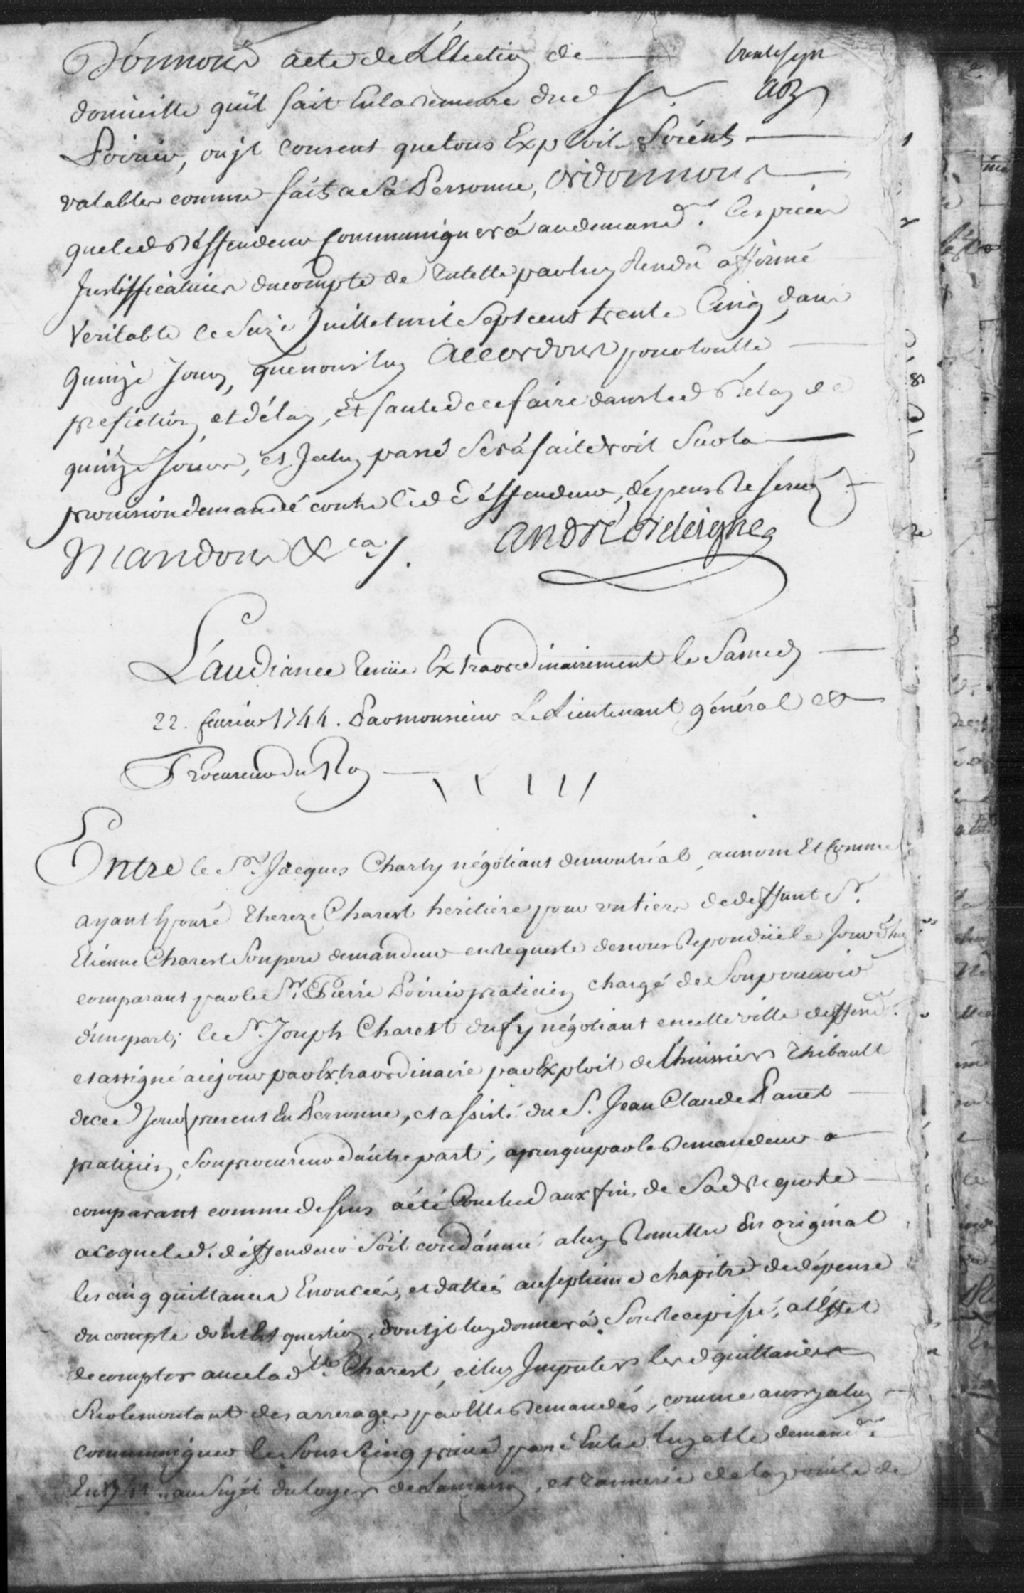 Donnons acte de L'Election de
domicille quil fait En la demeure dud Sr.
Poirier, ou jl consent que tous Exploits Soient
valables comme faits a Sa Personne, Ordonnons
que led Deffendeur Communiquera au demandr. les pieces
Justifficatives du compte de tutelle par luy Rendu affirmé
Veritable le Seize Juillet mil Sept cens trente Cinq, dans
quinze Jours, que nous luy Accordons pour toutte
prefiction, et délay, Et faute de ce faire dans led Délay de
quinze Jours, et Jceluy passé Sera fait droit Sur la
provision demandé contre led Déffendeur, dépens Reservés.
Mandons &ca/.
André Deleigne
L'audiance tenüe Extraordinairement le Samedy
22. fevrier 1744. Par monsieur Le Lieutenant général et
Procureur du Roy
Entre le Sr. Jacques Charly négotiant de montréal, au nom Et Comme
ayant Epousé Thereze Charest heritiere pour un tiers de deffunt Sr.
Etienne Charest Son pere demandeur en requeste de nous Repondüe le Jour d'huy
comparant par le Sr. Pierre Poirier praticien chargé de Son pouvoir
d'une part; le Sr. Joseph Charest dufy négotiant en cette ville deffendr.
et assigné a ce jour par Extraordinaire par Exploit de L'huissier Thibault
de ce d Jour present En Personne, et assisté du Sr. Jean Claude Panet
praticien, Son procureur d'autre part; apres que par le Demandeur
comparant comme dessus a été Conclud aux fins de Sad Requeste
a ce que led. déffendeur Soit condamné a luy Remettre En original
les cinq quittances Enoncées, et dattées au septieme chapitre de dépense
du compte dont Est question, dont jl luy donnera Son recepissé, a L'Effet
de compter avec lad De. Charest, et luy Imputer lesd quittances
Sur le montant des arrerages par Elle demandés, comme aussy a luy
communiquer le Sous Seing privé passé Entre luy et le demandr.
En 1741. au Sujet du loyer de la maison, et tannerie de la pointe de